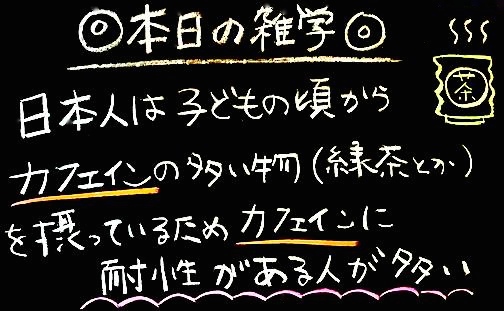 ◎本日の雑学◎
茶
日本人は子どもの頃から
カフェインの多い物(緑茶とか)
を摂っているためカフェインに
耐性がある人が多い